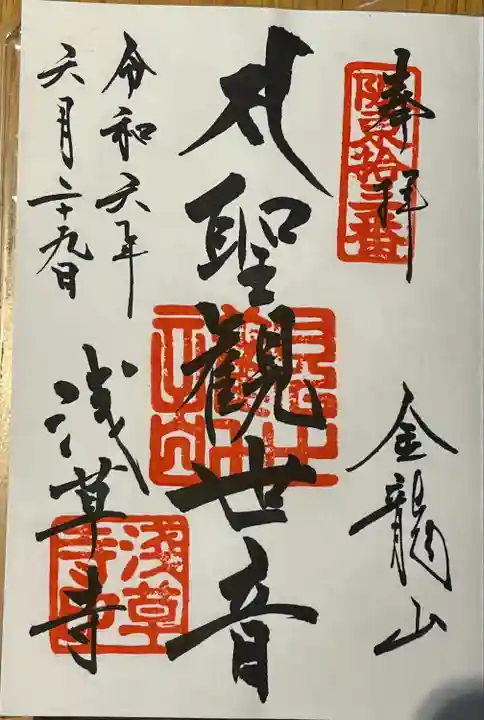 奉拝
坂東拾三番
金龍山
聖観世音
令和六年
六月二十九日
浅草寺
淺草寺印